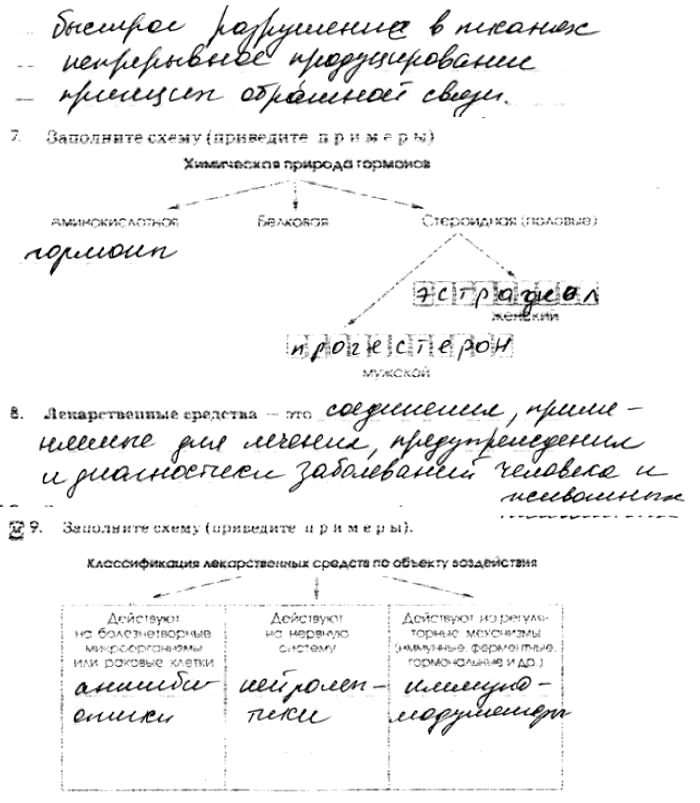 — быстрое разрушение в тканях
— непрерывное продуцирование
— принцип обратной связи.
7. Заполните схему (приведите примеры)
Химическая природа гормонов
Аминокислотная Белковая Стероидная (половые)
гормоны
эстрадиол
женский
прогестерон
мужской
8. Лекарственные средства — это соединения, приме-
няемые для лечения, предупреждения
и диагностики заболеваний человека и
животных
9. Заполните схему (приведите примеры).
Классификация лекарственных средств по объекту воздействия
Действуют Действуют Действуют на регуля-
на болезнетворные на нервную торные механизмы
микроорганизмы систему (иммунные, ферментные,
или раковые клетки гормональные и др.)
антиби- нейролеп- иммуно-
отики тики модуляторы